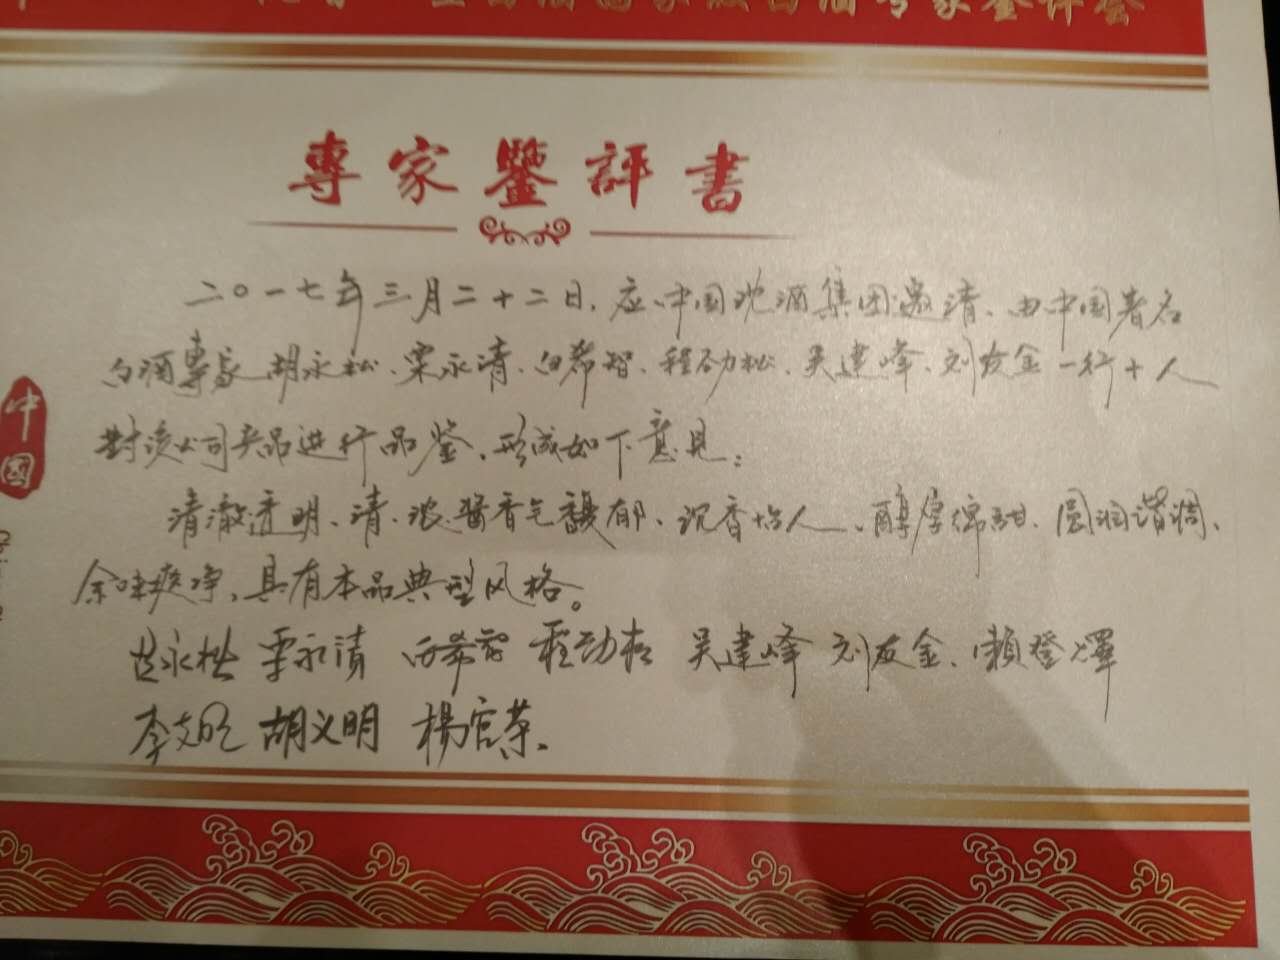 白酒专家鉴评会
專家鑒評書
二〇一七年三月二十二日，应中国沈酒集团邀请、由中国著名
白酒專家胡永松、栗永清、白希智、程劲松、吴建峰、刘友金一行十人
對该公司产品进行品鉴，形成如下意见：
清澈透明、清、浓酱香气馥郁、沉香怡人、醇厚绵甜、圆润谐调、
余味爽净，具有本品典型风格。
胡永松 栗永清 白希智 程劲松 吴建峰 刘友金、賴登燡
李 胡义明 楊官荣
中國